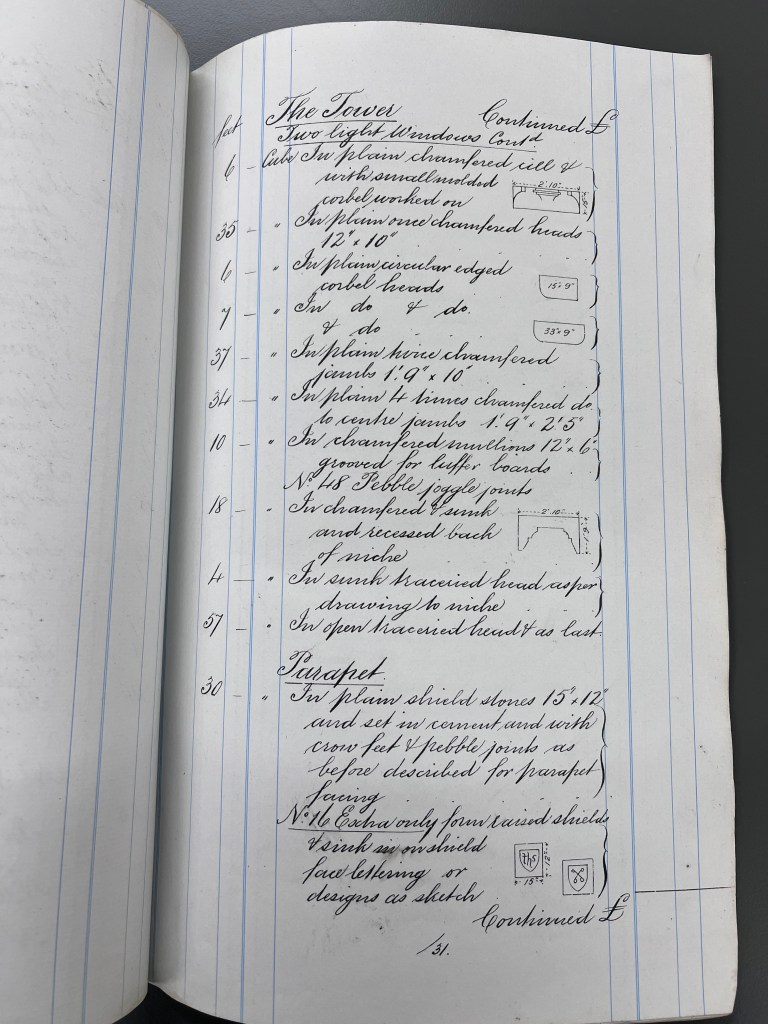 The Tower Continued £
Two light Windows Cont'd
feet
6 – Cube In plain chamfered cill &
with small molded
corbel worked on
2'.10"
35 – " In plain once chamfered heads
12" x 10"
6 – " In plain circular edged
corbel heads
15" 9"
7 – " In do & do.
& do
33" x 9"
37 – " In plain twice chamfered
jambs 1'.9" x 10"
34 – " In plain 4 times chamfered do.
to centre jambs 1'.9" x 2'.5"
10 – " In chamfered mullions 12" x 6"
grooved for luffer boards
No. 48 Pebble joggle joints
18 – " In chamfered & sunk
and recessed back
of niche
2'.10"
1'.9"
4 – " In sunk traceried head as per
drawing to niche
57 – " In open traceried head & as last.
Parapet.
30 – " In plain shield stones 15" x 12"
and set in cement, and with
crow feet & pebble joints as
before described for parapet
facing
No. 16 Extra only form raised shields
& sink in on shield
face lettering or
designs as sketch
ihs
12"
15"
Continued £
/31.